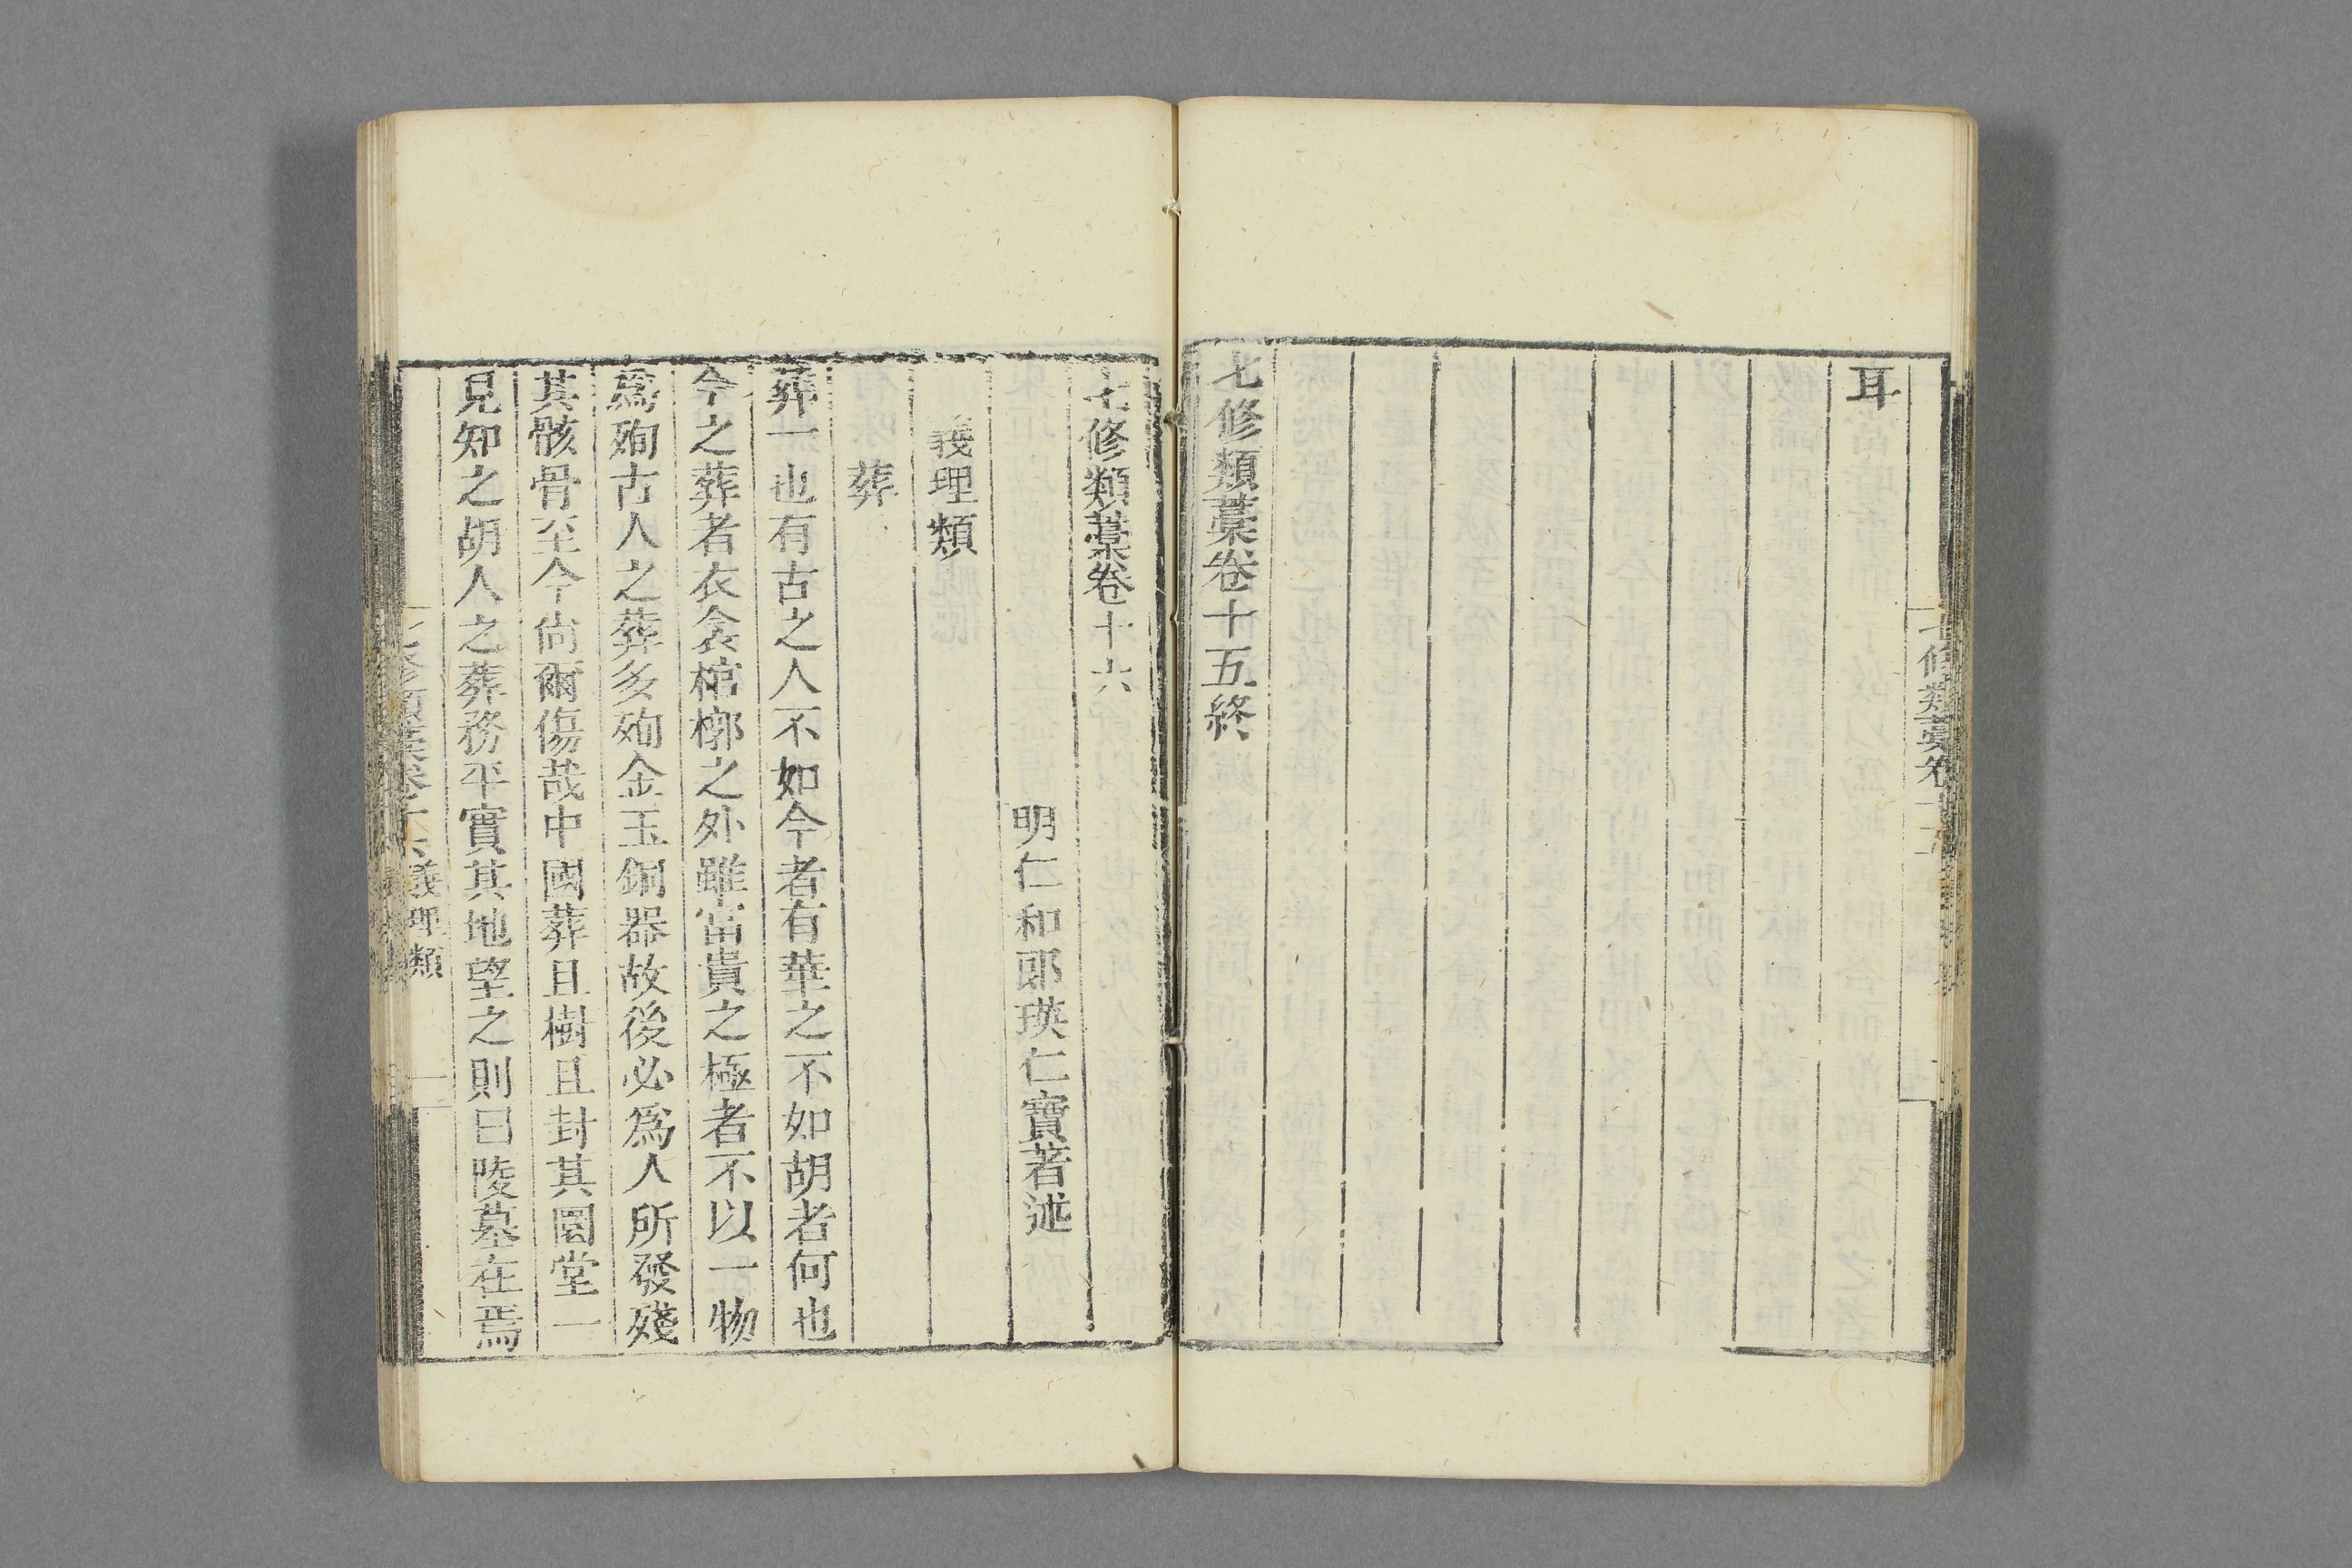 耳
七修類藁卷十五終
七修類藁卷十六
明仁和郎瑛仁寶著述
義理類
葬
葬一也有古之人不如今者有華之不如胡者何也
今之葬者衣衾棺槨之外雖富貴之極者不以一物
爲殉古人之葬多殉金玉銅器故後必爲人所發殘
其骸骨至今尙爾傷哉中國葬且樹且封其圜堂一
見知之胡人之葬務平實其地望之則曰陵墓在焉
七修類藁卷十六義理類 一